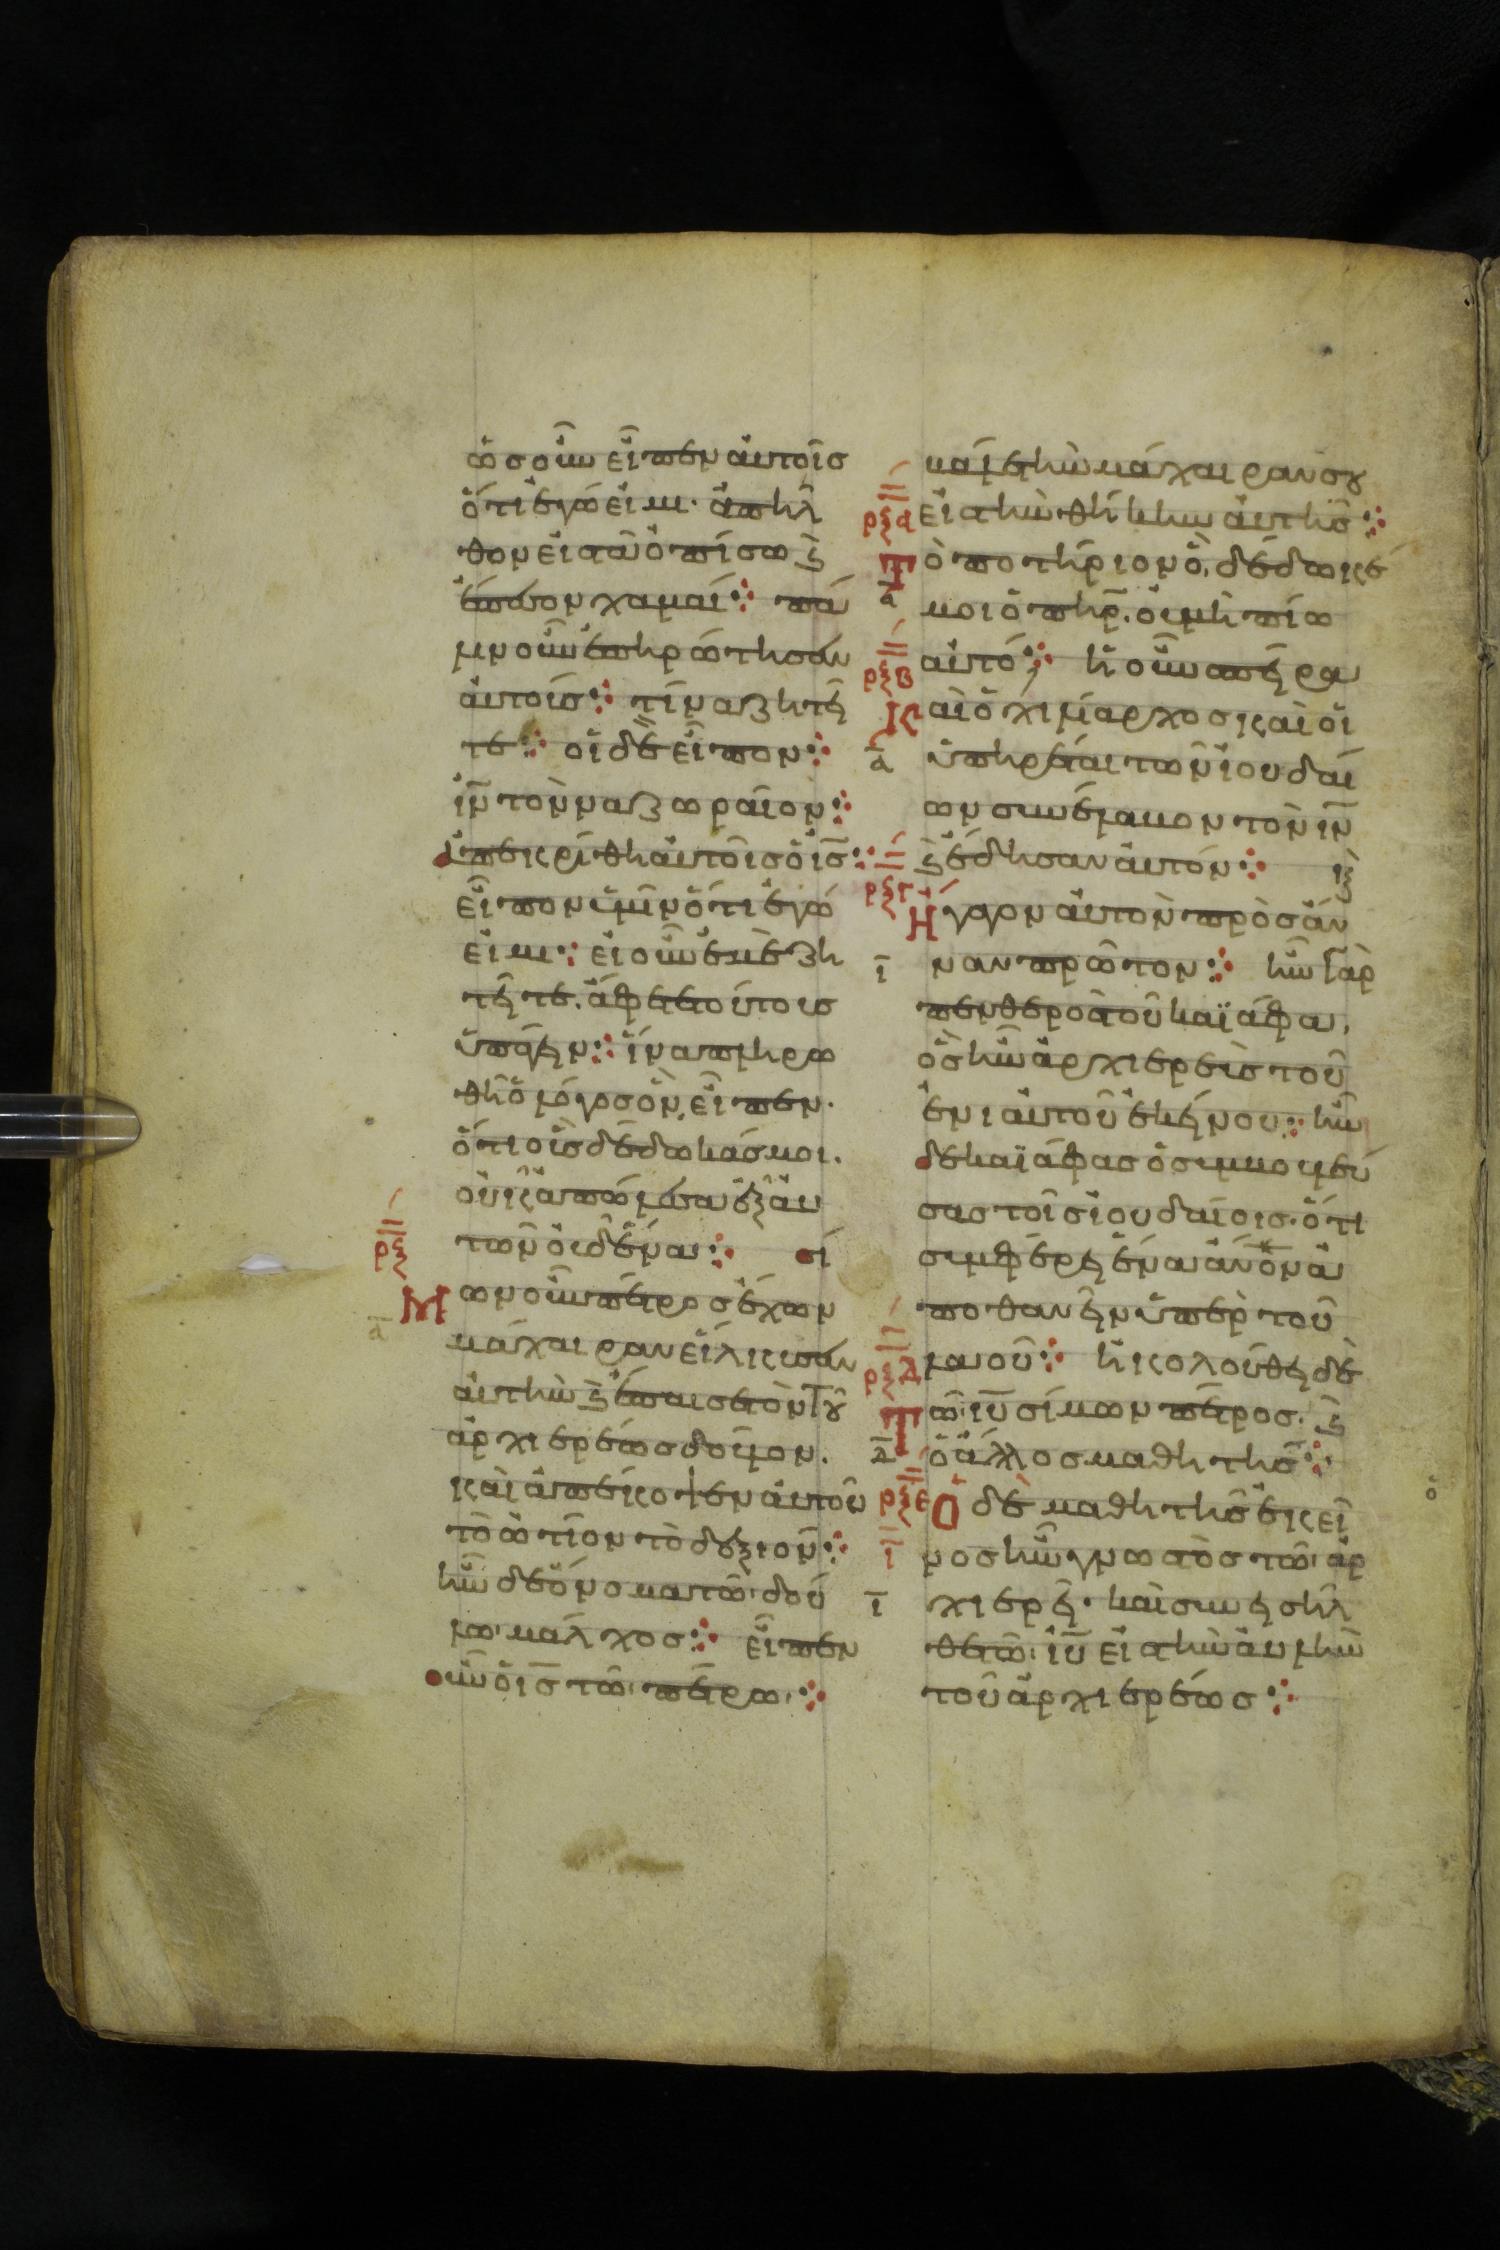 ὡσ οὖν εἶπεν αὐτοῖσ
ὅτι ἐγώ εἰμι· ἀπῆλ
θον εἰσ τὰ ὀπίσω ϗ
ἔπεσον χαμαί· πά
λιν οὖν ἐπηρώτησεν
αὐτοίσ· τίνα ζητεῖ
τε· οἱ δὲ εἶπον·
ἰν̅ τὸν ναζωραῖον·
ἀπεκρίθη αὐτοῖσ ὁ ισ̅·
εἶπον ὑμῖν ὅτι ἐγώ
εἰμι· εἰ οὖν ἐμὲ ζη
τεῖτε. ἄφετε τούτουσ
ὑπάγειν· ἵνα πληρω
θῆ ὁ λόγοσ ὃν, εἶπεν·
ὅτι οὓσ δέδωκάσ μοι.
οὐκ ἀπώλεσα ἐξ αὐ
τῶν οὐδένα· σί
ρξ
μων οὖν πέτροσ ἔχων
α̅
μάχαιραν εἵλκυσεν
αὐτὴν ϗ ἔπαισε τὸν τοῦ
ἀρχιερέωσ δοῦλον.
καὶ ἀπέκοψεν αὐτοῦ
τὸ ὠτίον τὸ δεξιόν·
ἦν δὲ ὄνομα τῶ δού
λω μάλχοσ· εἶπεν
οὖν ὁ ισ̅ τῶ πέτρω·
μαί τὴν μάχαιραν σου
ρξα εἰσ τὴν θήκην αὐτῆσ·
Τὸ ποτήριον ὃ, δέδωκέ
α̅ μοι ὁ πηρ̅. οὐ μὴ πίω
ρξβ αὐτό; ἡ οὖν σπεῖρα
Καὶ ὁ χιλίαρχοσ καὶ οἱ
α̅ ὑπηρέται τῶν ἰουδαί
ων συνέλαβον τὸν ιν̅
ϗ ἔδησαν αὐτόν· ϗ
ρξγ Ἤγαγον αὐτὸν πρὸσ ἄν
ι̅ ναν πρῶτον· ἦν γὰρ
πενθεροσ τοῦ καϊάφα,
ὃσ ἦν ἀρχιερεὺσ τοῦ
ἐνιαυτοῦ ἐκείνου· ἦν
δὲ καϊάφασ ὁ συμβουλεύ
σασ τοῖσ ἰουδαίοισ. ὅτι
συμφέρει ἕνα ἀν̅ον̅ ἀ
ποθανεῖν ὑπὲρ τοῦ
λαοῦ· ἠκολούθει δὲ
ρξδ
Τῶ ιυ̅ σίμων πέτροσ. ϗ
δ̅ ὁ ἄλλοσ μαθητήσ·
ρξε Ὁ δὲ μαθητὴσ ἐκεῖ
ι̅ νοσ ἦν γνωστὸσ τῶ ἀρ
ι̅ χιερεῖ· καὶ συνεισῆλ
θε τῶ ιυ̅ εἰσ τὴν αὐλὴν
τοῦ ἀρχιερέωσ·